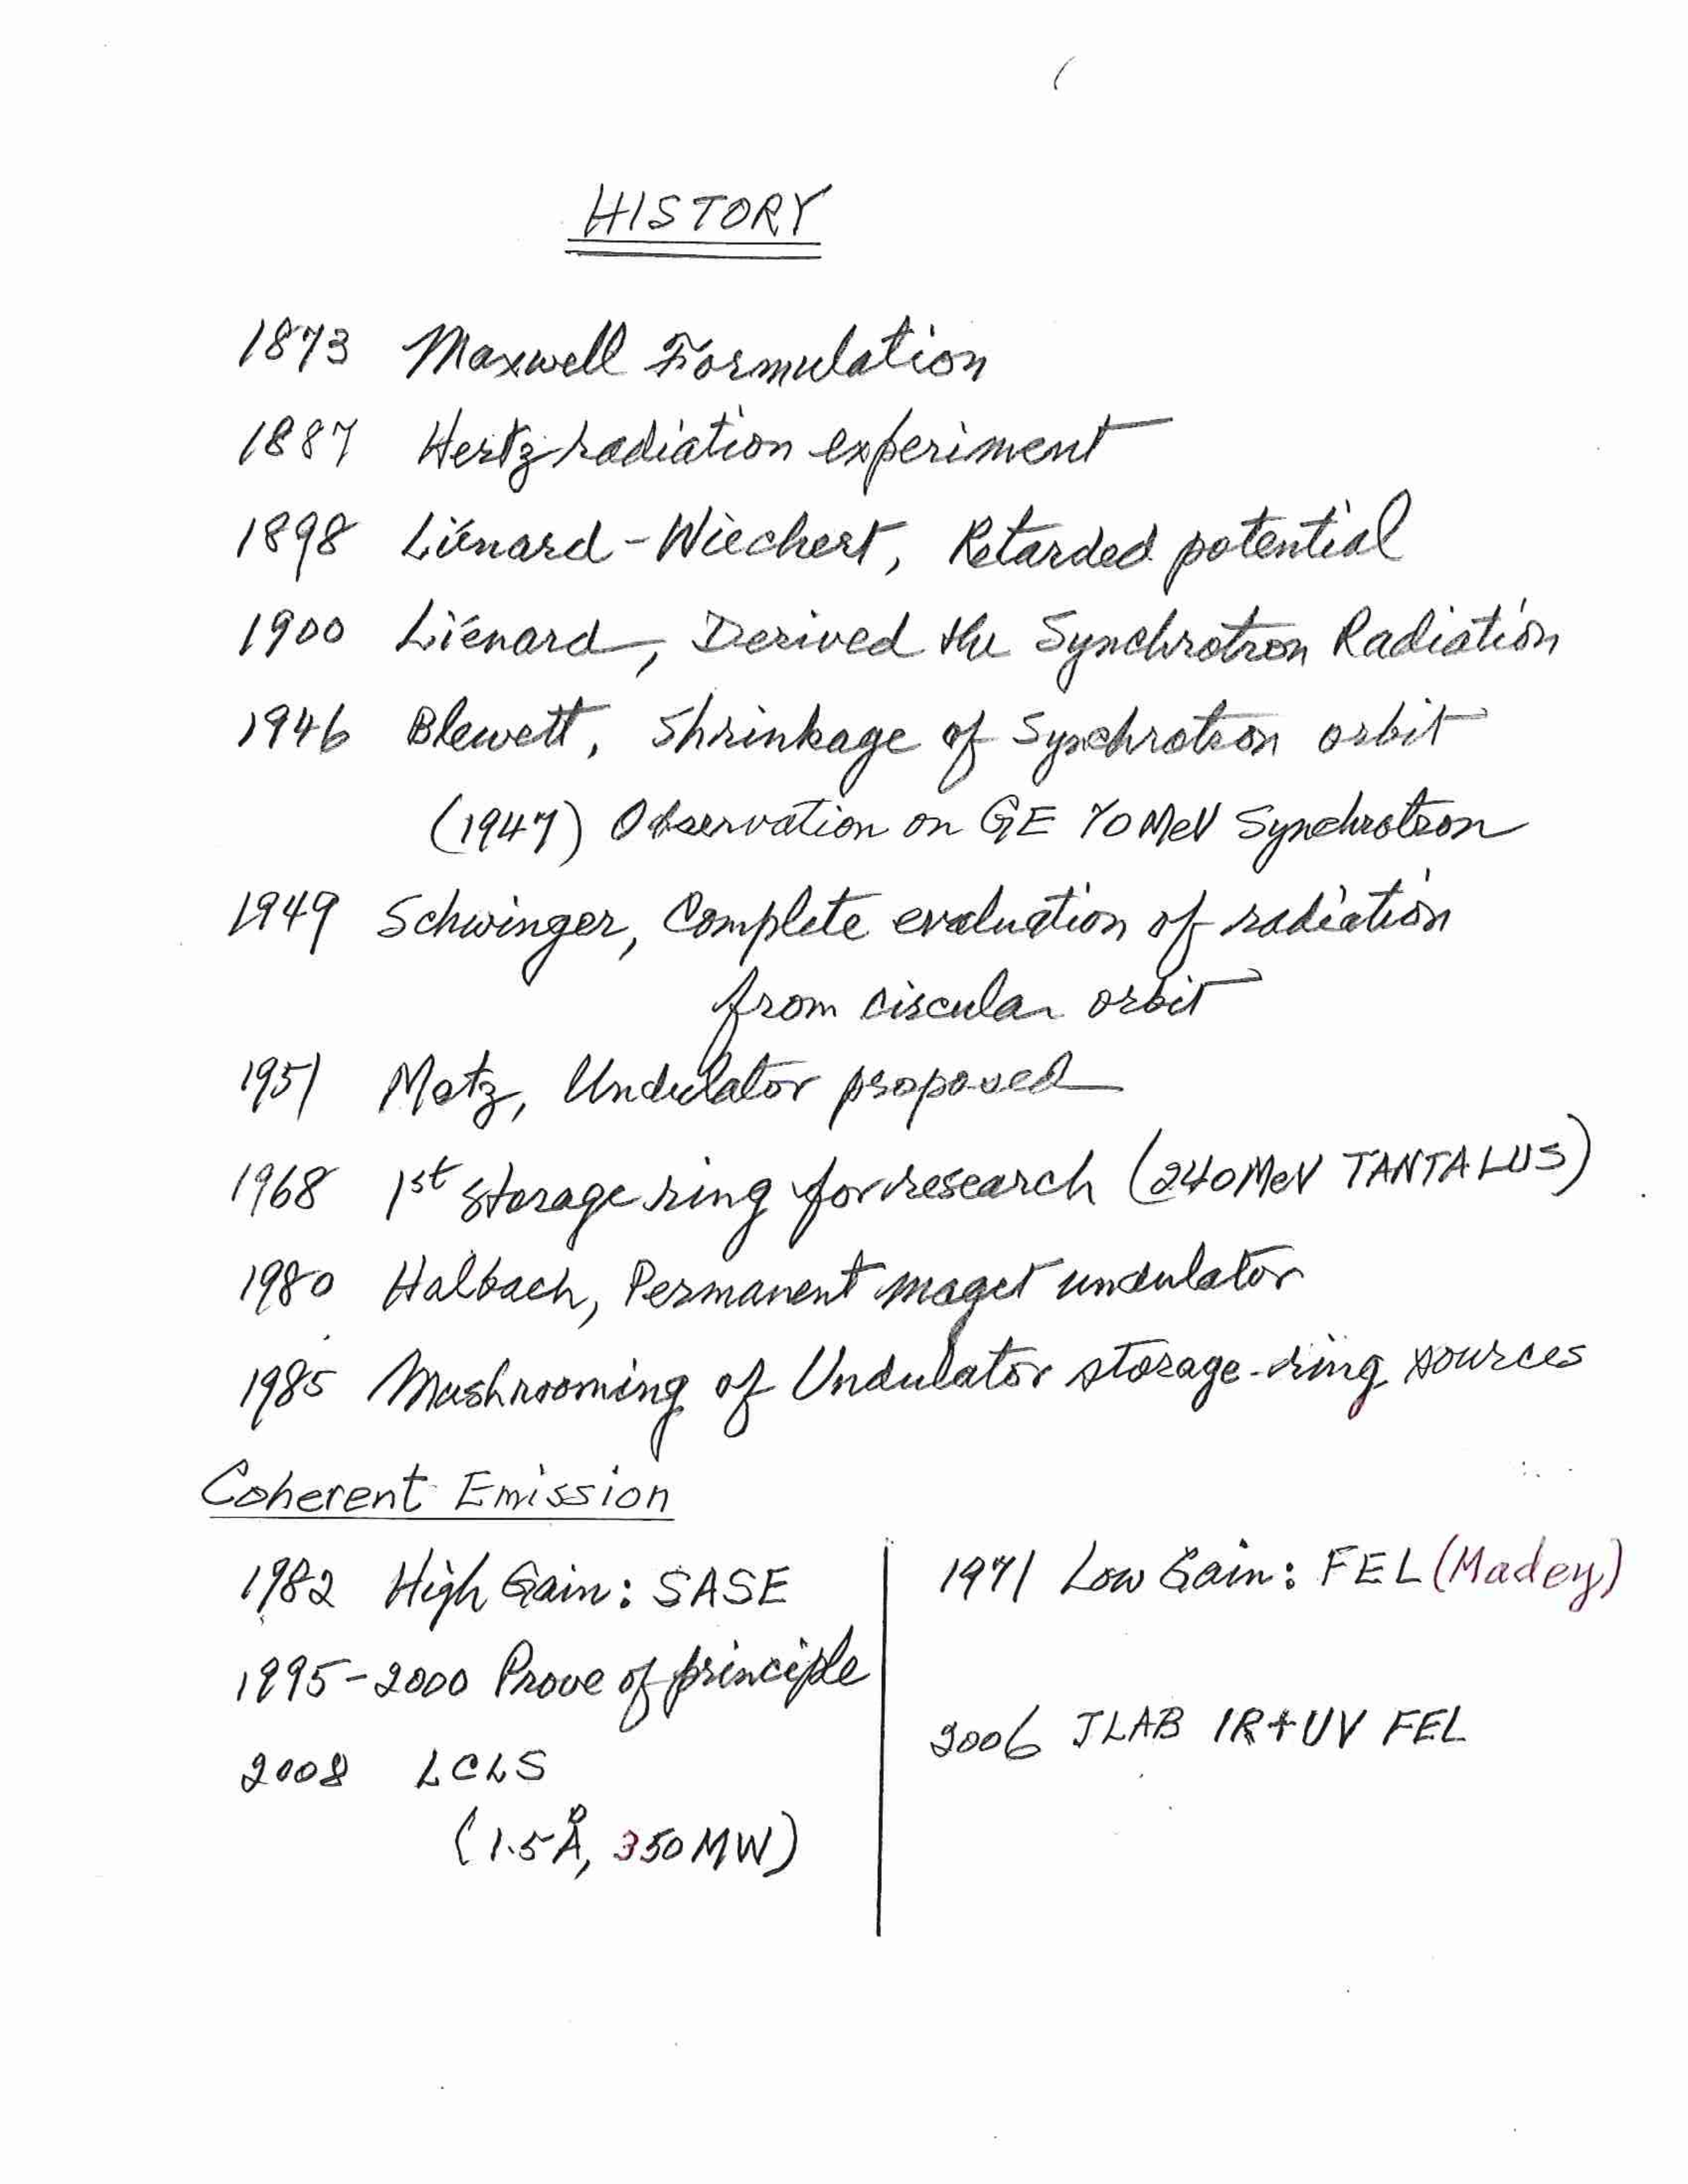 HISTORY
1873 Maxwell Formulation
1887 Hertz radiation experiment
1898 Liénard - Wiechert, Retarded potential
1900 Liénard, Derived the Synchrotron Radiation
1946 Blewett, Shrinkage of Synchrotron orbit
(1947) Observation on GE 70 MeV Synchrotron
1949 Schwinger, Complete evaluation of radiation
from circular orbit
1951 Motz, Undulator proposed
1968 1st storage ring for research (240 MeV TANTALUS)
1980 Halbach, Permanent maget undulator
1985 Mushrooming of Undulator storage-ring sources
Coherent Emission
1982 High Gain: SASE
1995-2000 Prove of principle
2008 LCLS
(1.5 Å, 350 MW)
1971 Low Gain: FEL (Madey)
2006 JLAB IR+UV FEL